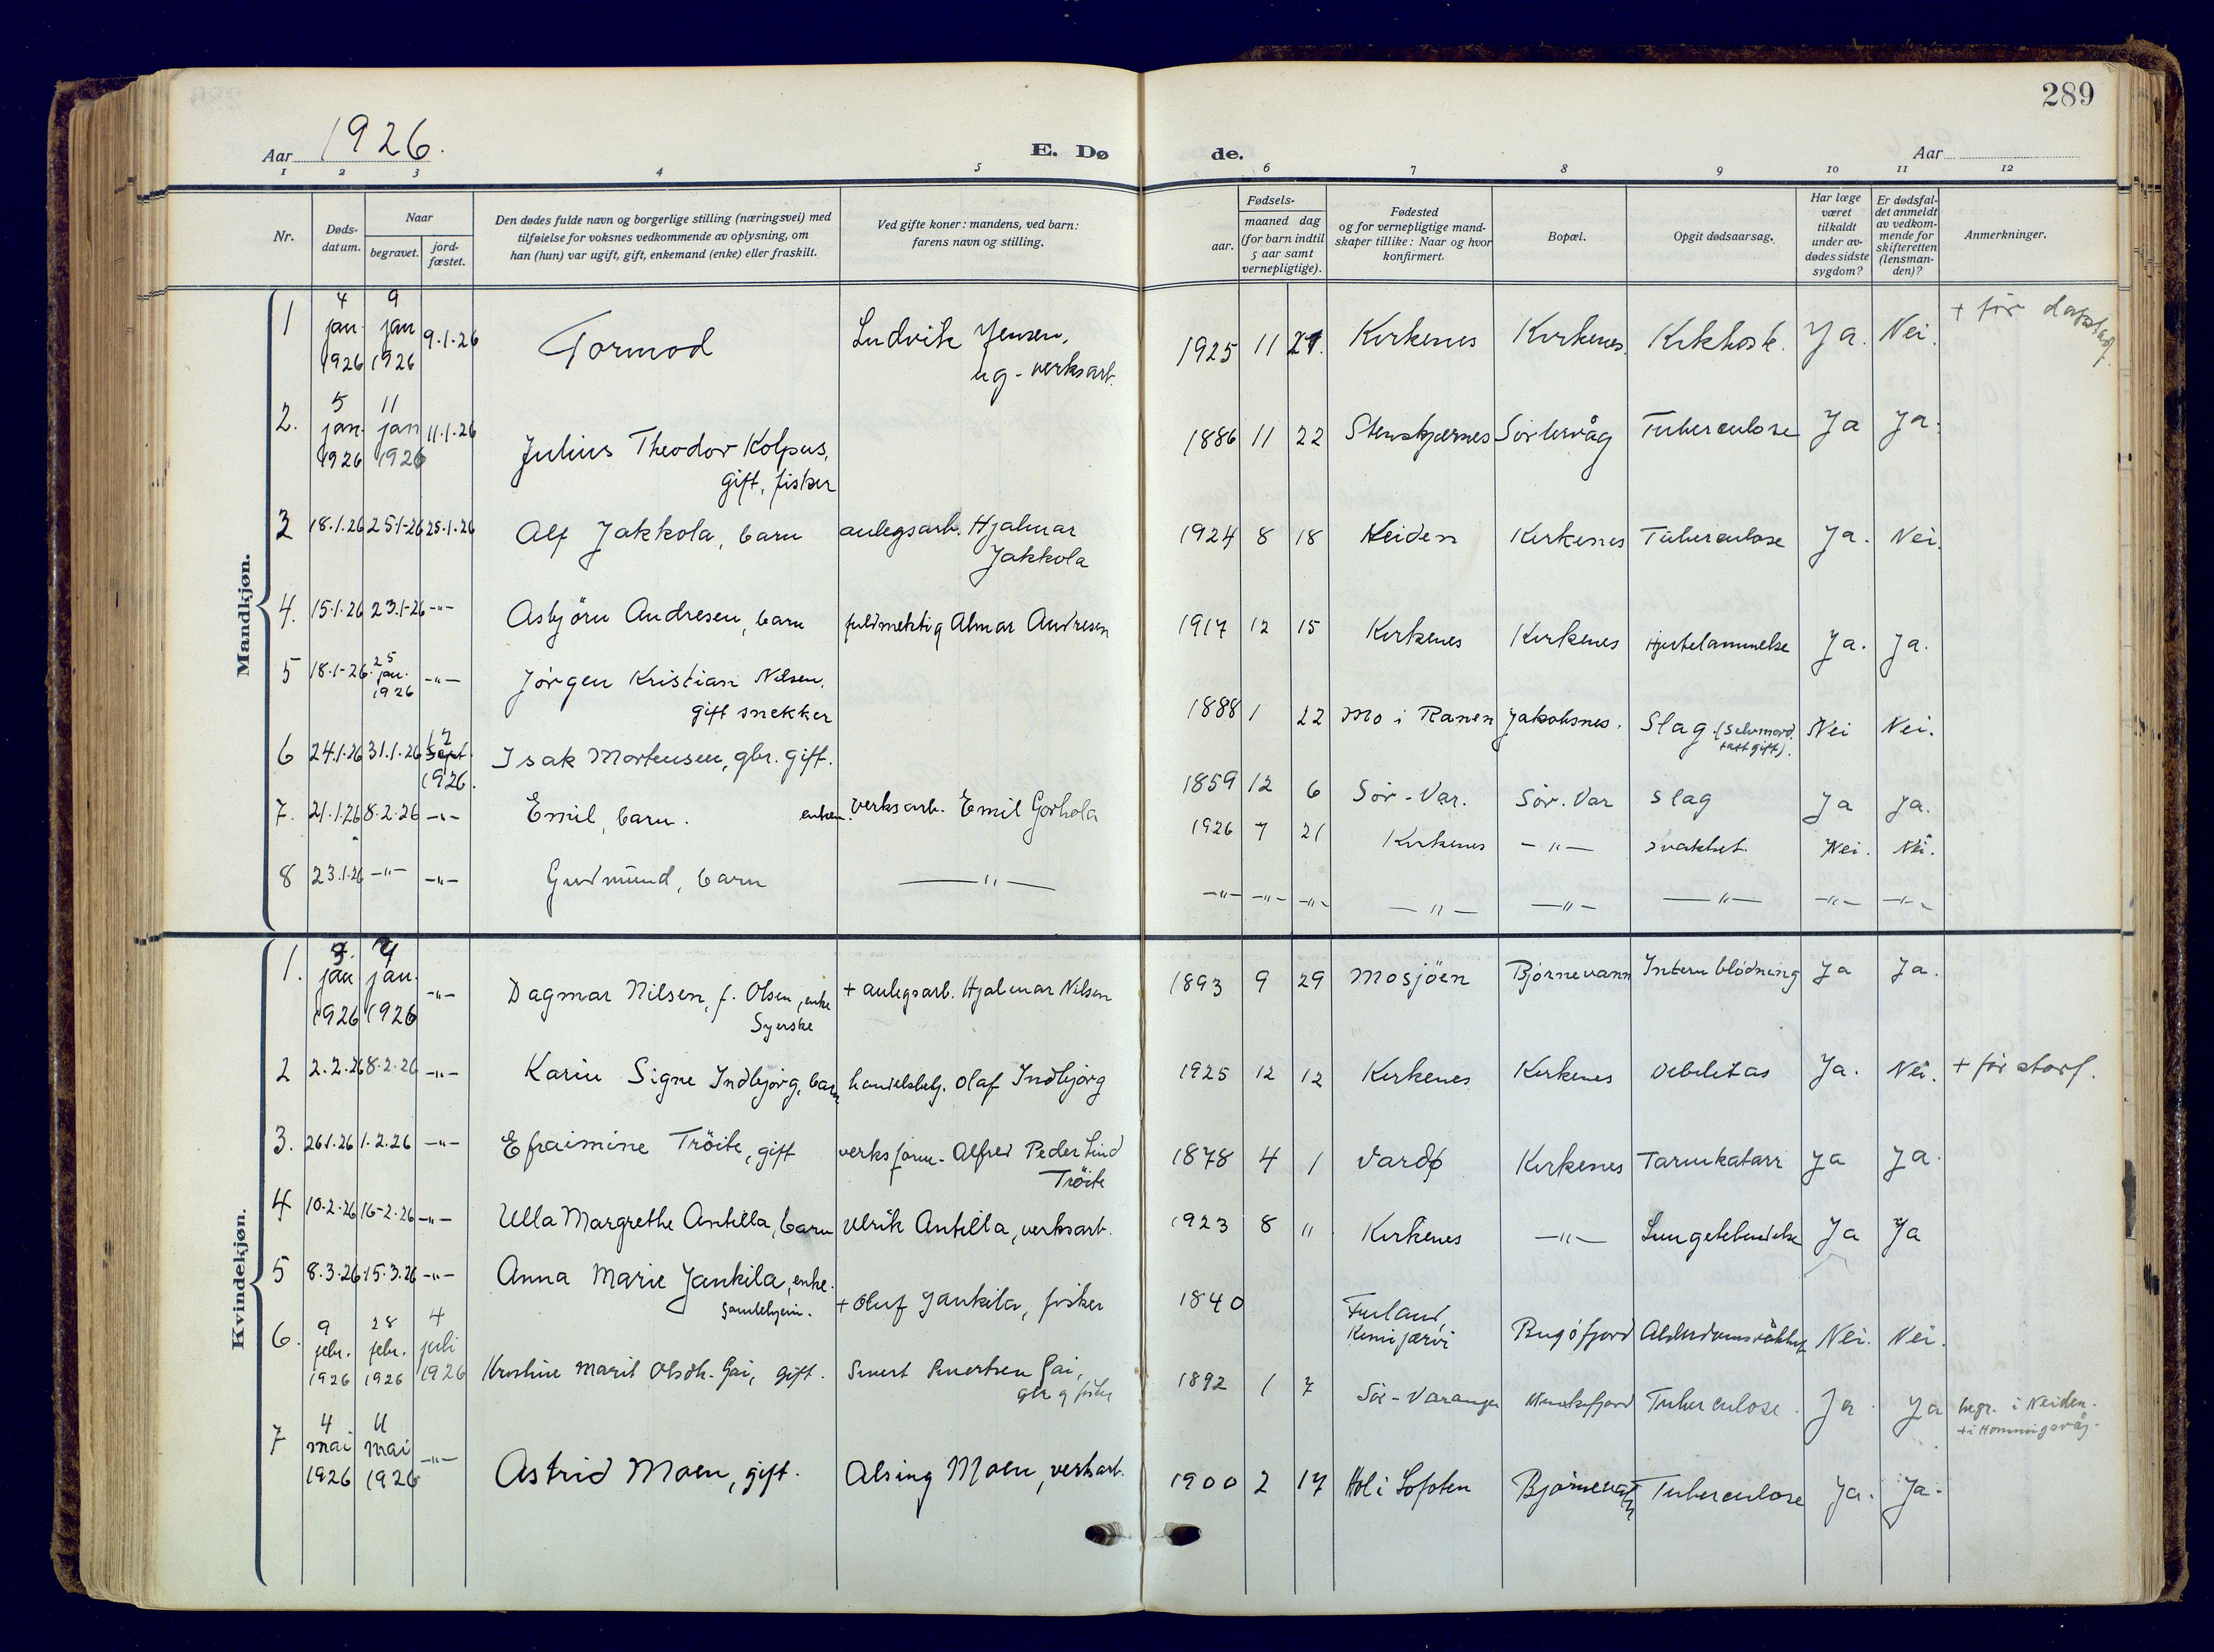 289
Aar 1926.
E. Dø
de.
Aar
1 2 3 4 5 6 7 8 9 10 11 12
Nr.
Døds-
datum.
Naar
begravet.
jord-
fæstet.
Den dødes fulde navn og borgerlige stilling (næringsvei) med
tilføielse for voksnes vedkommende av oplysning, om
han (hun) var ugift, gift, enkemand (enke) eller fraskilt.
Ved gifte koner: mandens, ved barn:
farens navn og stilling.
Fødsels-
aar.
maaned dag
(for barn indtil
5 aar samt
vernepligtige).
Fødested
og for vernepligtige mand-
skaper tillike: Naar og hvor
konfirmert.
Bopæl.
Opgit dødsaarsag.
Har læge
været
tilkaldt
under av-
dødes sidste
sygdom?
Er dødsfal-
det anmeldt
av vedkom-
mende for
skifteretten
(lensman-
den)?
Anmerkninger.
Mandkjøn.
1 4 jan. 1926 9 jan 1926 9.1.26 Tormod Ludvik Jensen, ug. verksarb. 1925 11 27. Kirkenes Kirkenes. Kikhoste. Ja. Nei. + før
2. 5 jan. 1926 11 jan 1926 11.1.26 Julius Theodor Kolpus, 1886 11 22 Stenskjernes Sørlervåg Tuberculose Ja Ja.
gift, fisker
3 18.1.26 25.1-26 25.1.26 Alf Jakkola, barn anlegsarb. Hjalmar 1924 8 18 Neiden Kirkenes Tuberculose Ja. Nei.
Jakkola
4. 15.1.26 23.1-26 -"- Asbjörn Andresen, barn fuldmektig Almar Andresen 1917 12 15 Kirkenes Kirkenes Hjertelammelse Ja. Ja.
5 18.1-26. 25 jan. 1926 -"- Jørgen Kristian Nilsen, 1888 1 22 Mo i Ranen Jakobsnes. Slag (Selvmord. tatt gift). Nei Nei.
gift snekker
6 24.1.26 31.1.26 12 Sept. 1926. Isak Mortensen, gbr. gift. 1859 12 6 Sør-Var. Sør.Var slag Ja Ja.
7. 21.1.26 8.2.26 -"- Emil, barn. verksarb. Emil Gorhola 1926 1 21 Kirkenes -"- svakhet. Nei. Nei.
8 23.1.26 -"- -"- Gudmund, barn -"- -"- -"- -"- -"- -"- -"- -"- -"-
Kvindekjøn.
1. jan 1926 jan. 1926 -"- Dagmar Nilsen, f. Olsen, enke + anlegsarb. Hjalmar Nilsen 1893 9 29 Mosjöen Bjørnevann Intern blødning Ja Ja.
Syerske
2 2.2.26 8.2.26 -"- Karin Signe Indbjørg, barn handelsbetj. Olaf Indbjørg 1925 12 12 Kirkenes Kirkenes Debilitas Ja. Nei. + før storf.
3. 26.1.26 1.2.26 -"- Efraimine Tröite, gift verksform. Alfred Peder Lind 1878 4 1 Vardø Kirkenes Tarmkatarr Ja Ja.
Tröite
4 10.2.26 16-2.26 -"- Ulla Margrethe Antilla, barn Ulrik Antilla, verksarb. 1923 8 " Kirkenes -"- Lungebetendelse Ja Ja
5 8.3.26 15.3.26 -"- Anna Marie Jankila, enke. + Oluf Jankila, fisker 1840 Finland, Kemijærvi Bugøfjord Alderdomssvakhet Nei. Nei.
Gamlehjem.
6. 9 febr. 1926 28 febr. 1926 4 juli 1926 Kirstine Marit Olsdtr. Gai, gift. Simert Simertsen Gai, 1892 1 7 Sør-Varanger Munkefjord Tuberculose. Ja Ja begr. i Neiden.
gbr og fisker + i Honningsvåg.
7 4 mai 1926 11 mai 1926 -"- Astrid Moen, gift. Alsing Moen, verksarb. 1900 2 17 Hol i Lofoten Bjørnevatn Tuberculose Ja. Ja.